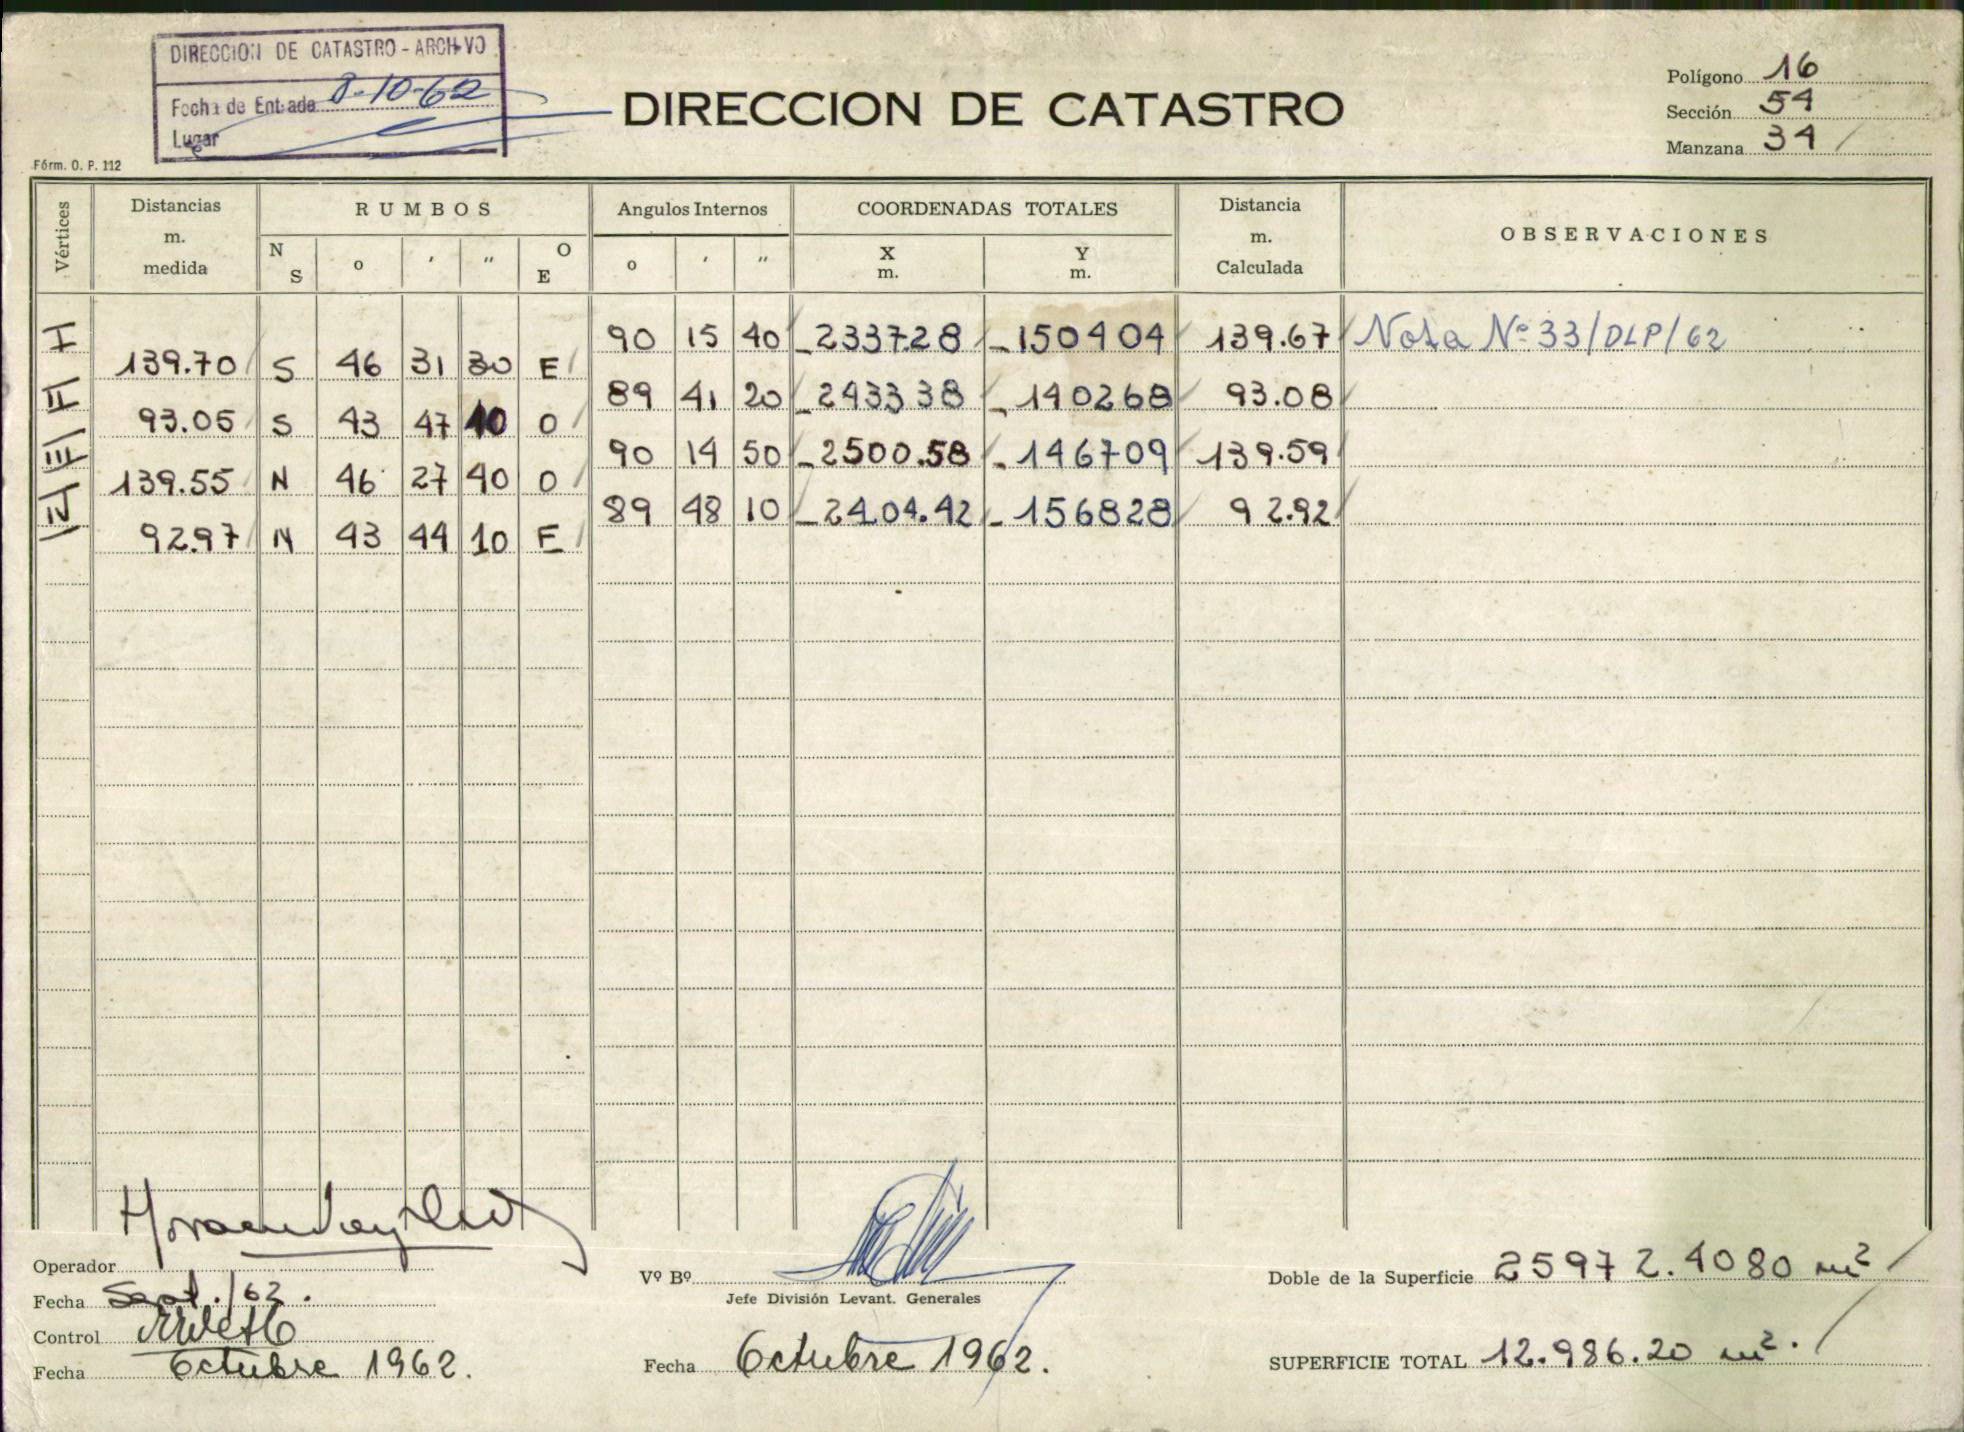 DIRECCION DE CATASTRO - ARCHIVO
Fecha de Entrada 8-10-62
Lugar
DIRECCION DE CATASTRO
Polígono 16
Sección 54
Manzana 34
Fórm. O. P. 112
Vértices Distancias m. medida RUMBOS Angulos Internos COORDENADAS TOTALES Distancia m. Calculada OBSERVACIONES
N S o ′ ″ O E o ′ ″ X m. Y m.
I 90 15 40 -2337.28 -1504.04 139.67 Nota Nº 33/DLP/62
139.70 S 46 31 30 E
II 89 41 20 -2433.38 -1402.68 93.08
93.05 S 43 47 10 O
III 90 14 50 -2500.58 -1467.09 139.59
139.55 N 46 27 40 O
IV 89 48 10 -2404.42 -1568.28 92.92
92.97 N 43 44 10 E
Operador
Fecha Sept./62.
Control
Fecha Octubre 1962.
Vº Bº
Jefe División Levant. Generales
Fecha Octubre 1962.
Doble de la Superficie 25972.4080 m²
SUPERFICIE TOTAL 12.986.20 m².